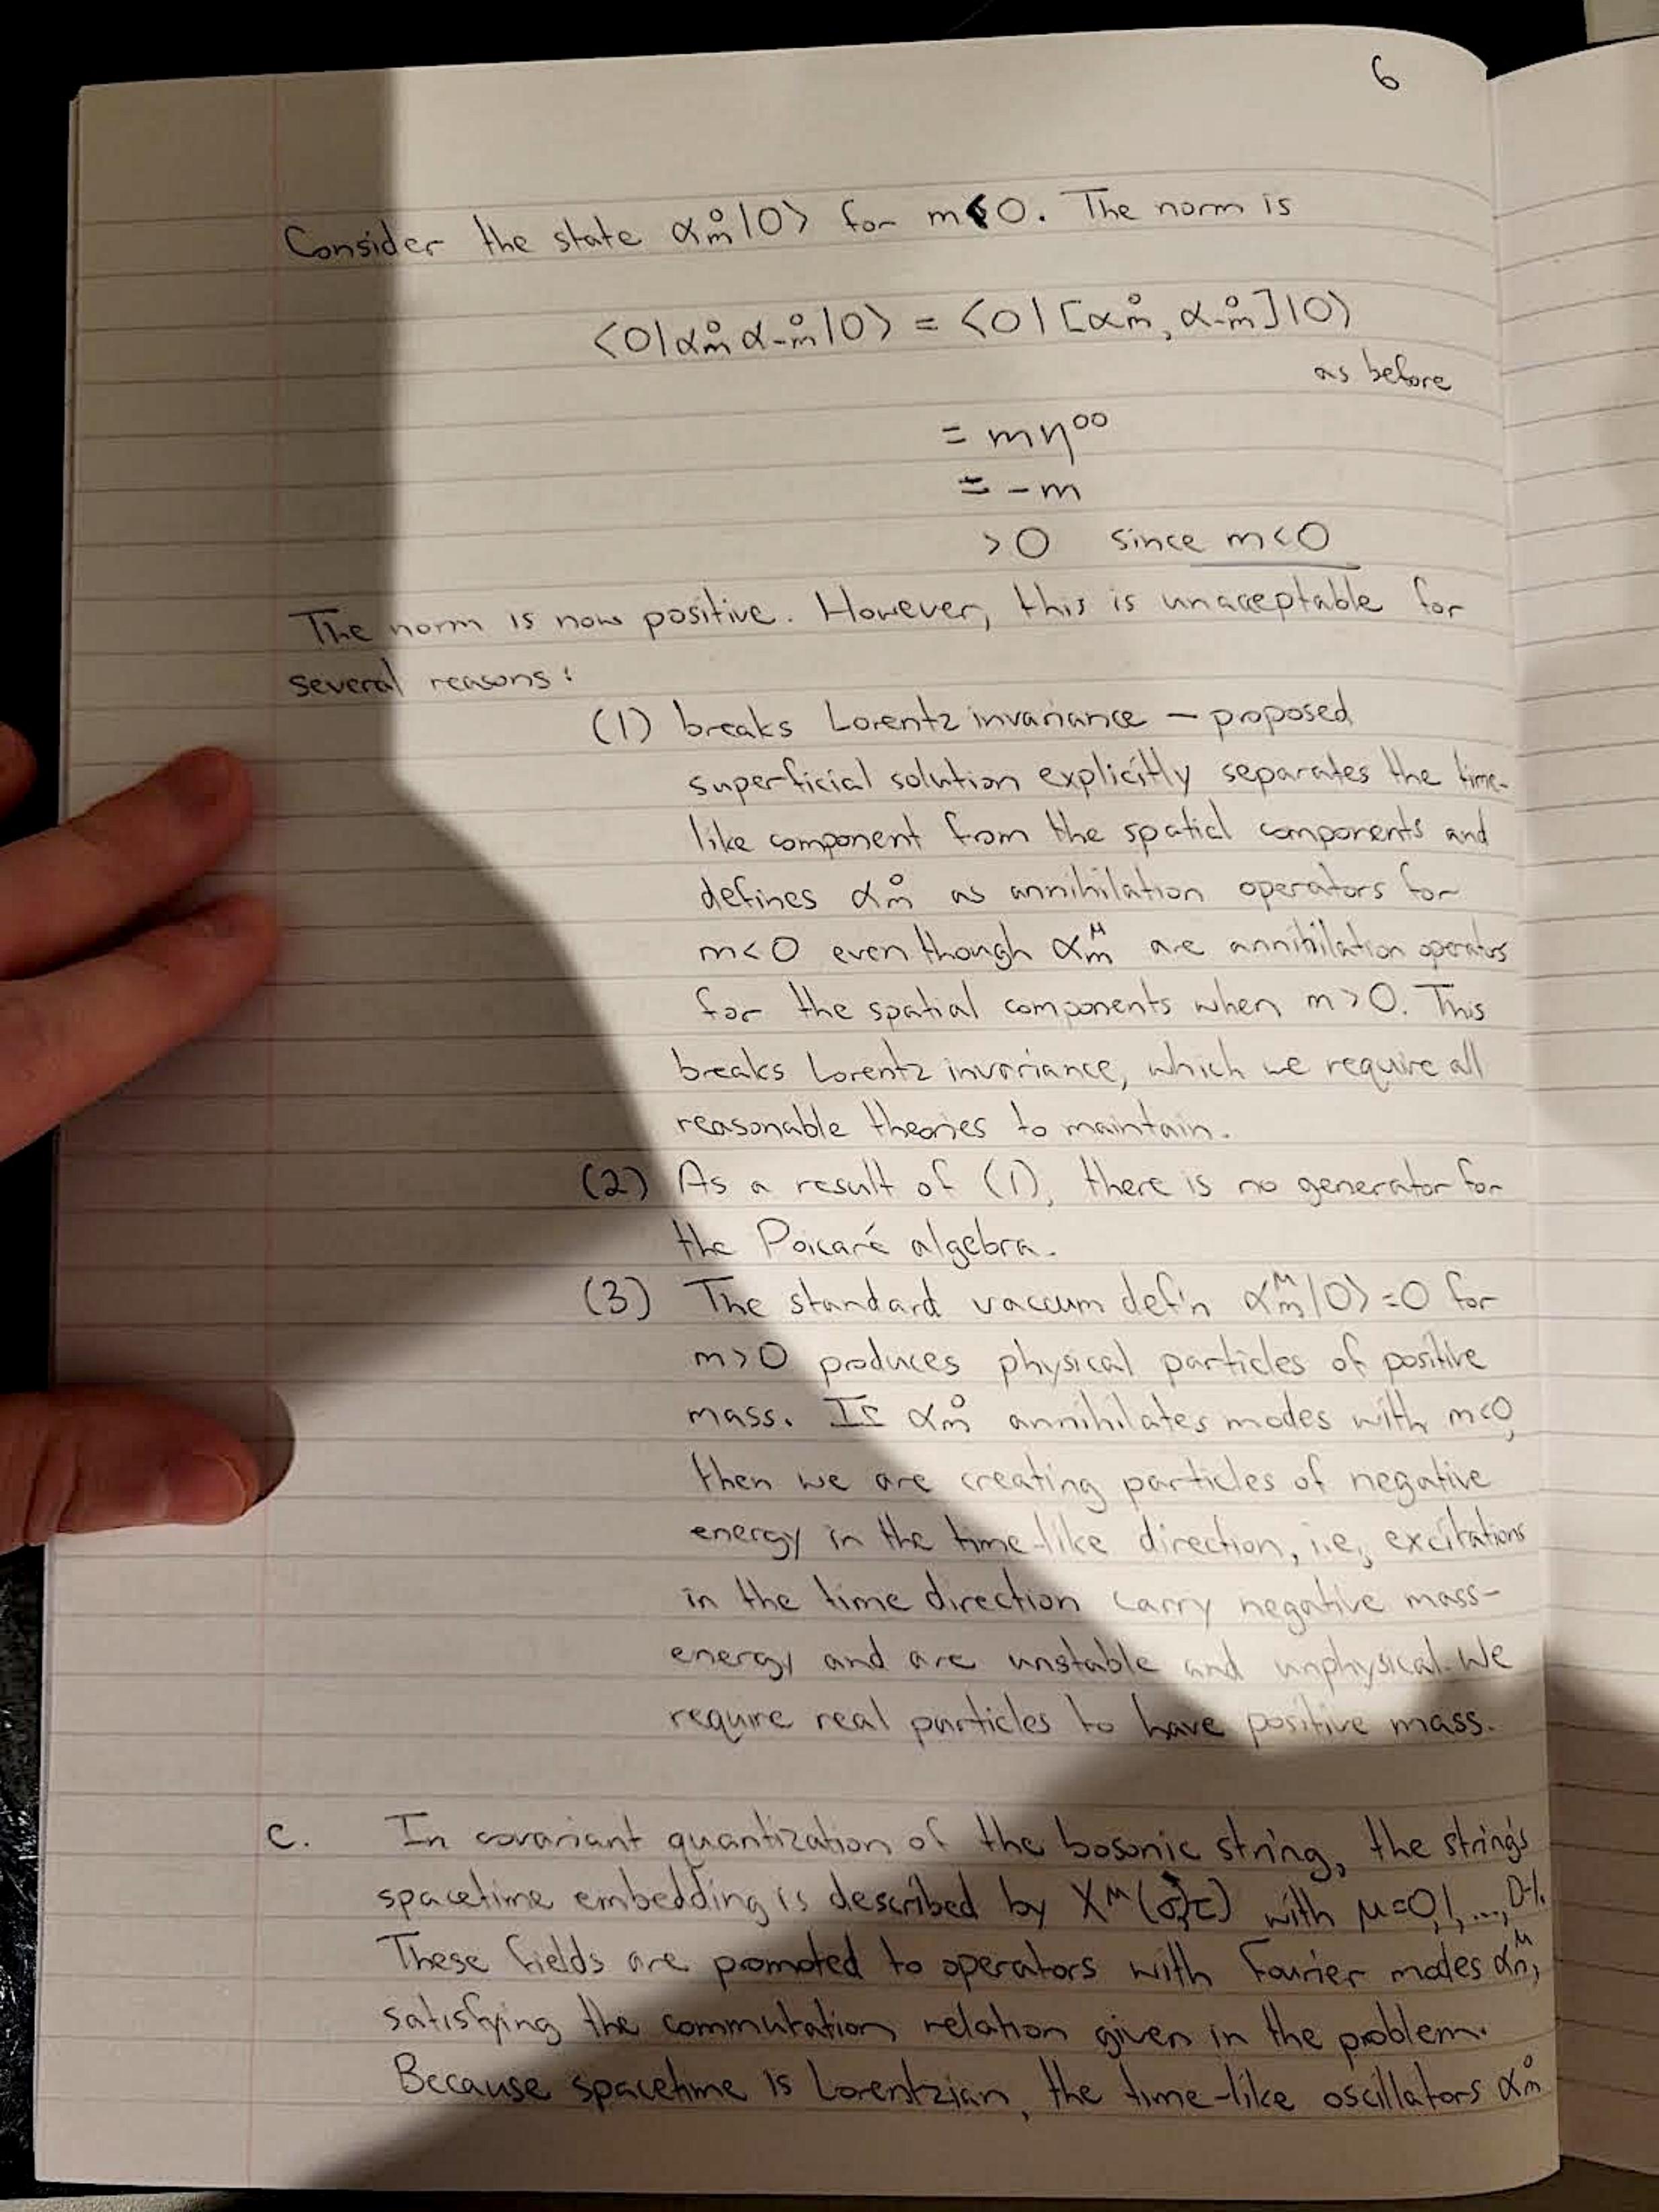 6
Consider the state α⁰ₘ|0⟩ for m<0. The norm is
⟨0|α⁰ₘ α⁰₋ₘ|0⟩ = ⟨0|[α⁰ₘ, α⁰₋ₘ]|0⟩
as before
= mη⁰⁰
= -m
>0 since m<0
The norm is now positive. However, this is unacceptable for
several reasons:
(1) breaks Lorentz invariance – proposed
superficial solution explicitly separates the time-
like component from the spatial components and
defines α⁰ₘ as annihilation operators for
m<0 even though αᵘₘ are annihilation operators
for the spatial components when m>0. This
breaks Lorentz invariance, which we require all
reasonable theories to maintain.
(2) As a result of (1), there is no generator for
the Poicaré algebra.
(3) The standard vaccum def'n αᵘₘ|0⟩=0 for
m>0 produces physical particles of positive
mass. If α⁰ₘ annihilates modes with m<0,
then we are creating particles of negative
energy in the time-like direction, i.e., excitations
in the time direction carry negative mass-
energy and are unstable and unphysical. We
require real particles to have positive mass.
c. In covariant quantization of the bosonic string, the string's
spacetime embedding is described by Xᵘ(σ,τ) with μ=0,1,...,D-1.
These fields are promoted to operators with Fourier modes αᵘₙ,
satisfying the commutation relation given in the problem.
Because spacetime is Lorentzian, the time-like oscillators α⁰ₙ